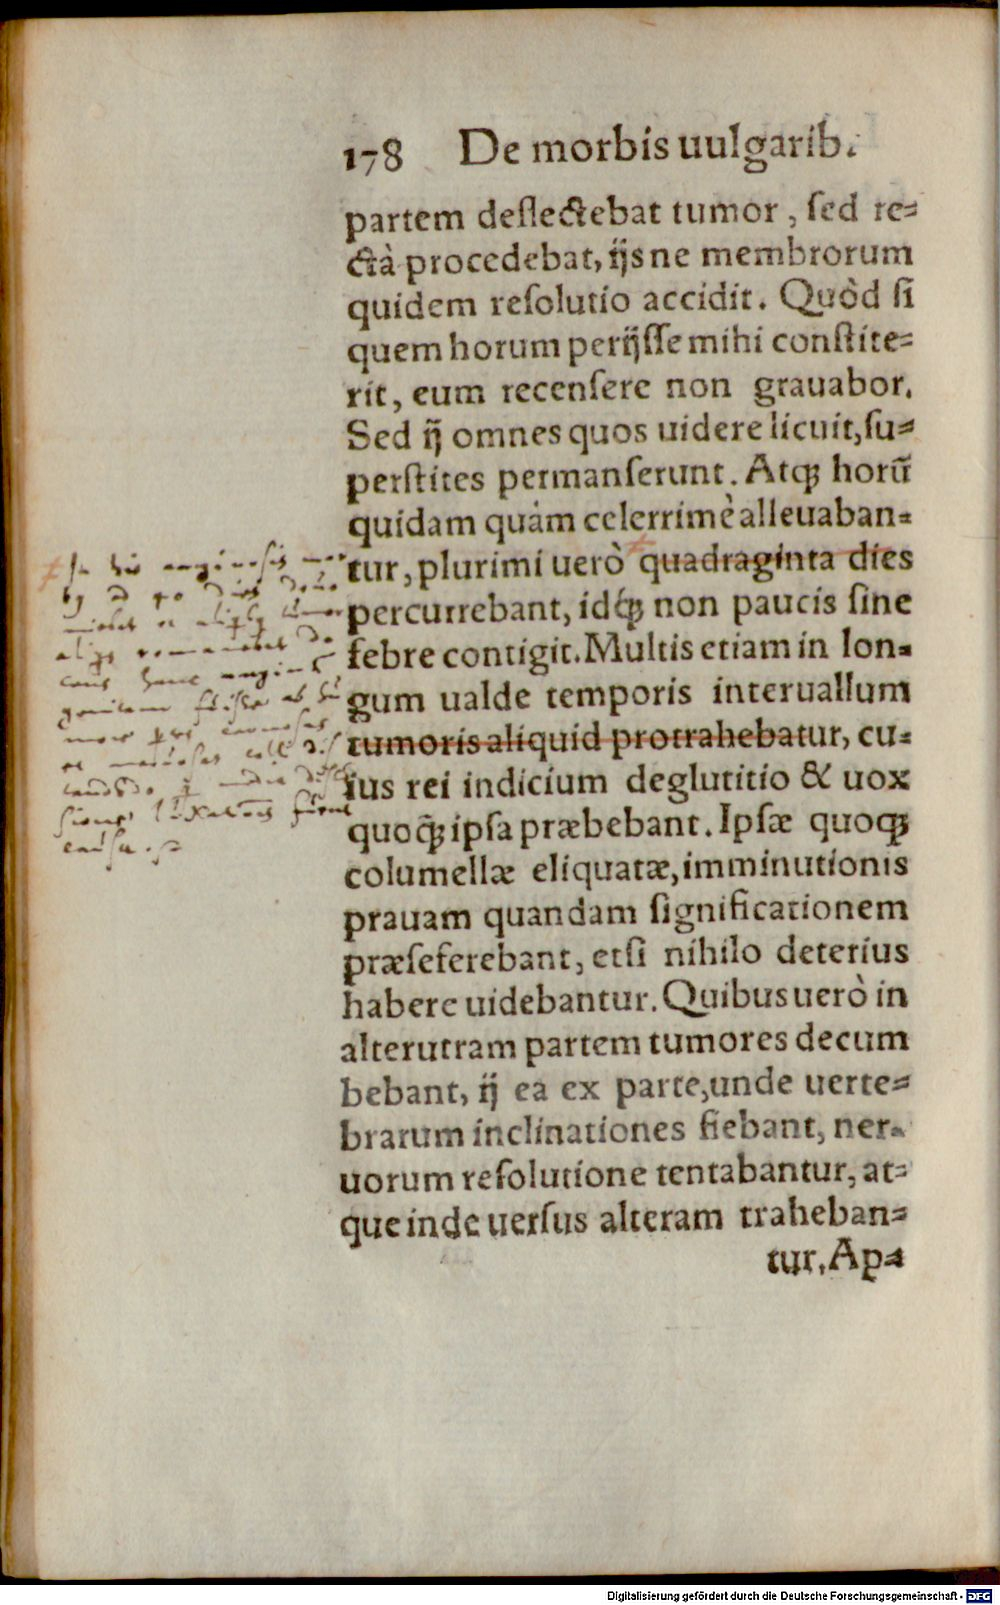 178 De morbis uulgarib.
partem deflectebat tumor, sed re=
ctà procedebat, ijs ne membrorum
quidem resolutio accidit. Quòd si
quem horum perijsse mihi constite=
rit, eum recensere non grauabor.
Sed ij omnes quos uidere licuit, su=
perstites permanserunt. Atq; horũ
quidam quàm celerrimè alleuaban=
tur, plurimi uerò quadraginta dies
percurrebant, idq́; non paucis sine
febre contigit. Multis etiam in lon=
gum ualde temporis interuallum
tumoris aliquid protrahebatur, cu=
ius rei indicium deglutitio & uox
quoq; ipsa præbebant. Ipsæ quoq;
columellæ eliquatæ, imminutionis
prauam quandam significationem
præseferebant, etsi nihilo deterius
habere uidebantur. Quibus uerò in
alterutram partem tumores decum
bebant, ij ea ex parte, unde uerte=
brarum inclinationes fiebant, ner=
uorum resolutione tentabantur, at=
que inde uersus alteram traheban=
tur. Ap=
Digitalisierung gefördert durch die Deutsche Forschungsgemeinschaft - DFG